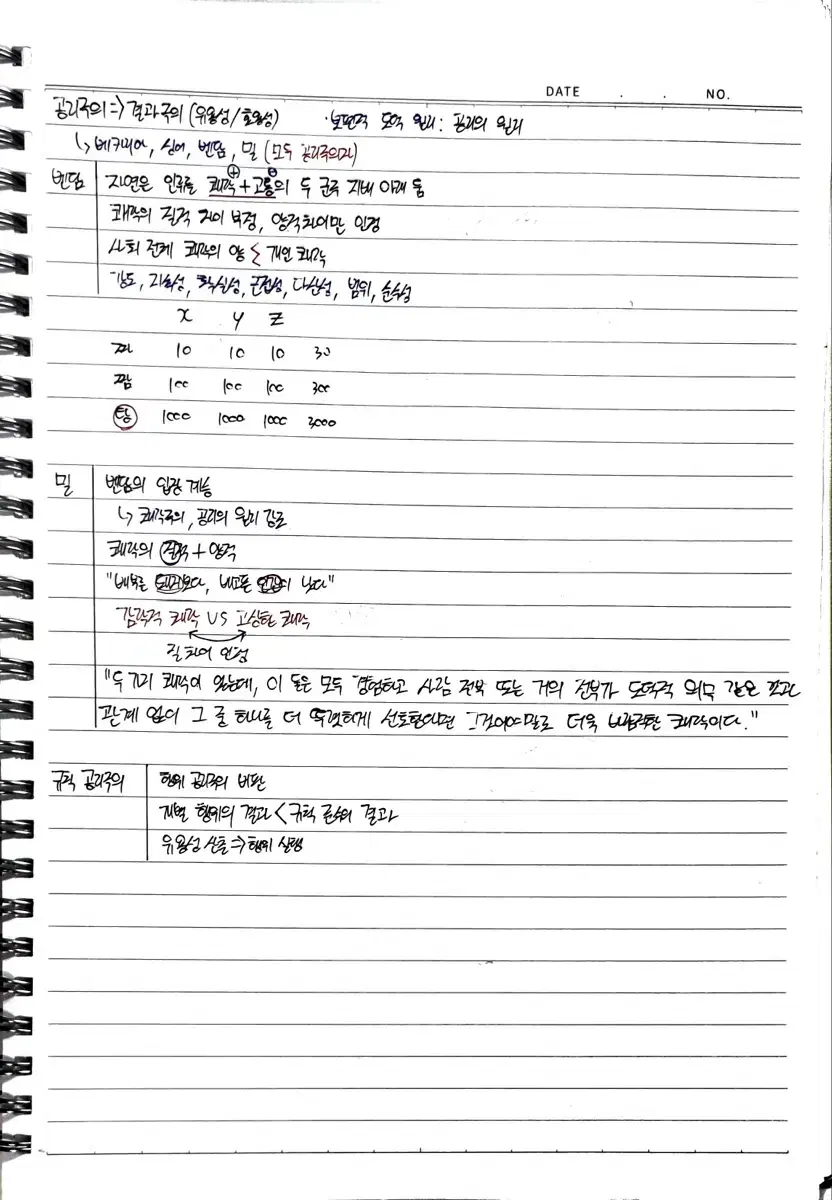 DATE . . NO.
공리주의 => 결과주의 (유용성/효용성) · 보편적 도덕 원리: 공리의 원리
↳ 베카리아, 싱어, 벤담, 밀 (모두 공리주의자)
벤담 자연은 인류를 쾌락⊕ + 고통⊖의 두 군주 지배 아래 둠
쾌락의 질적 차이 부정, 양적차이만 인정
사회 전체 쾌락의 양 < 개인 쾌락
강도, 지속성, 확실성, 근접성, 다산성, 범위, 순수성
x y z
찌 10 10 10 30
짬 100 100 100 300
탕 1000 1000 1000 3000
밀 벤담의 입장 계승
↳ 쾌락주의, 공리의 원리 강조
쾌락의 질적 + 양적
"배부른 돼지보다, 배고픈 인간이 낫다"
감각적 쾌락 VS 고상한 쾌락
질 차이 인정
"두 가지 쾌락이 있는데, 이 둘은 모두 경험하고 사람 전부 또는 거의 전부가 도덕적 의무 같은 것과
관계 없이 그 중 하나를 더 뚜렷하게 선호한다면 그것이야말로 더욱 바람직한 쾌락이다."
규칙 공리주의 행위 공리주의 비판
개별 행위의 결과 < 규칙 준수의 결과
유용성 산출 => 행위 실행